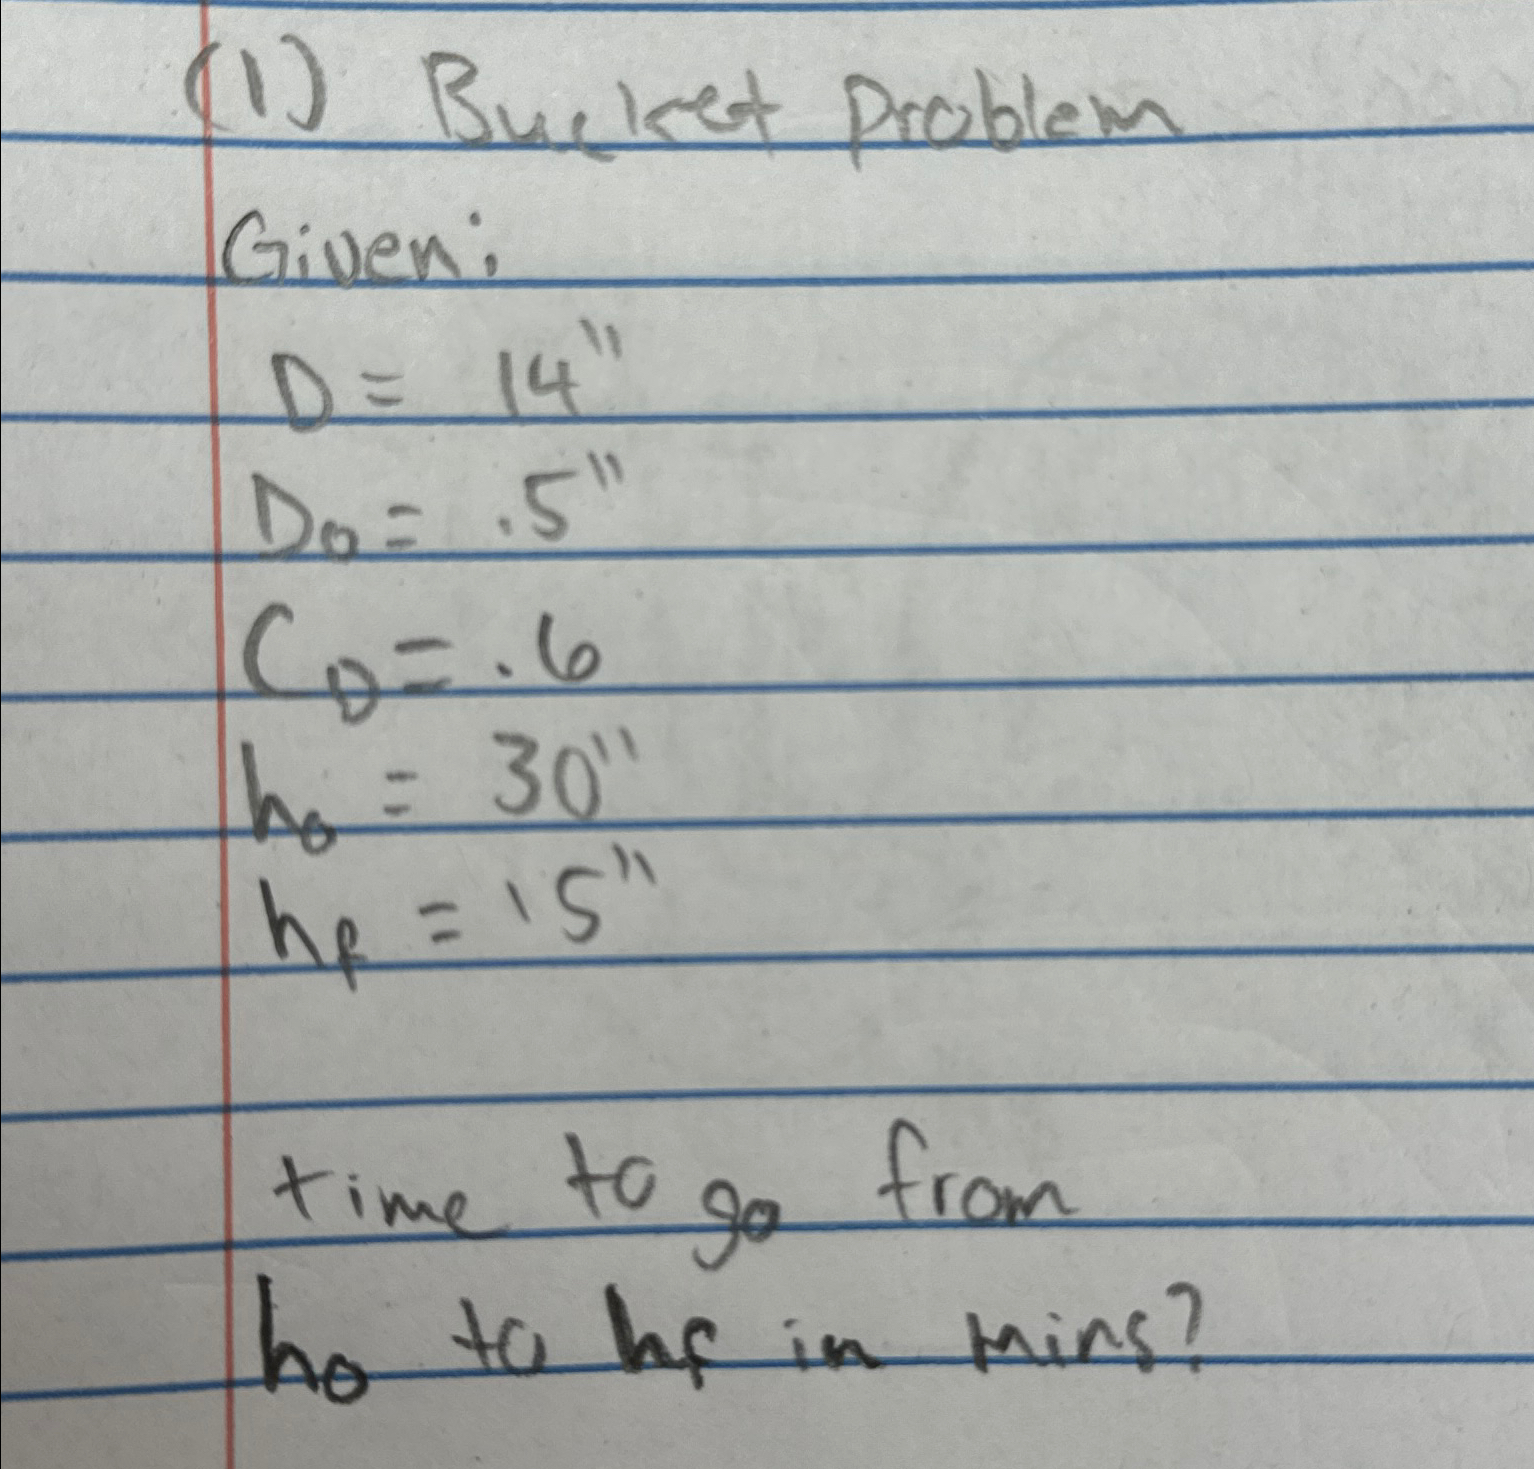 (1) Bucket Problem
Given:
D = 14"
Do = .5"
CD = .6
ho = 30"
hf = 15"
time to go from
ho to hf in mins?